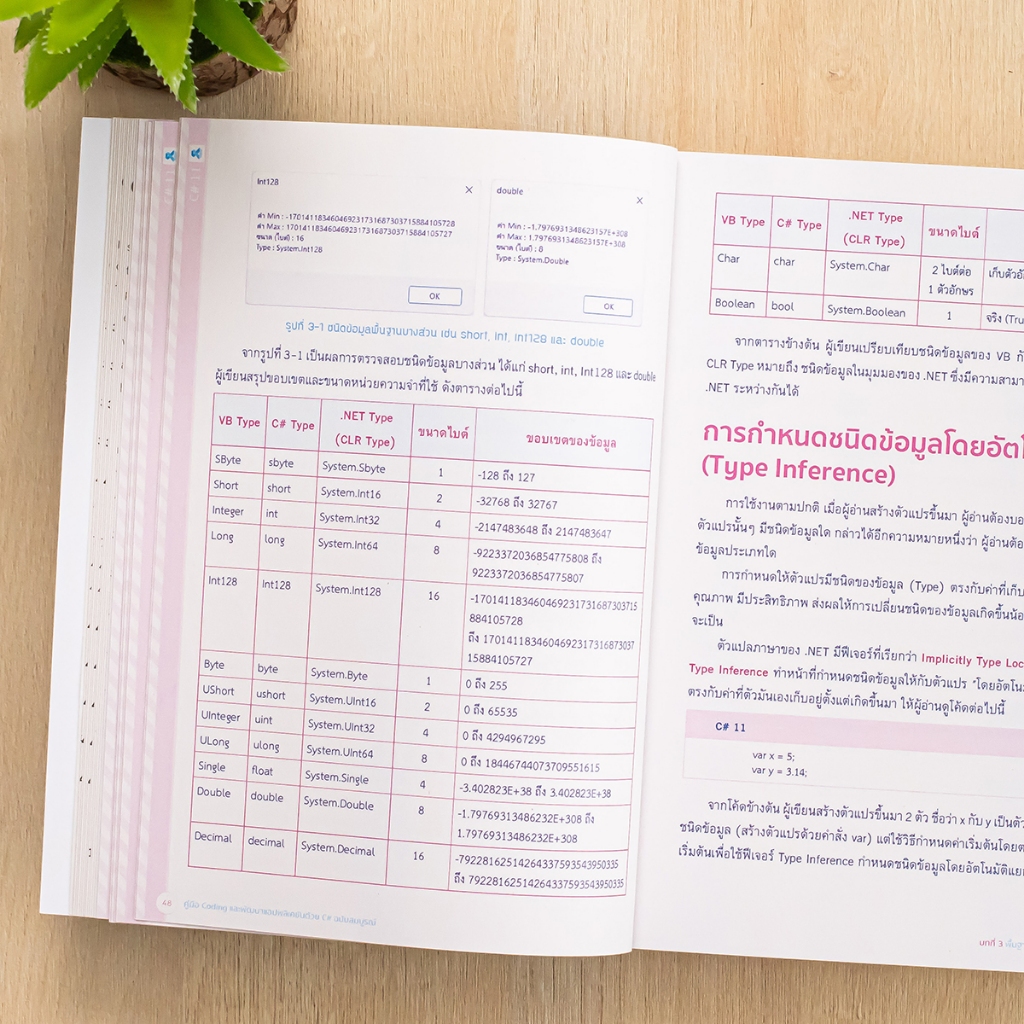 Int128
ค่า Min : -170141183460469231731687303715884105728
ค่า Max : 170141183460469231731687303715884105727
ขนาด (ไบต์) : 16
Type : System.Int128
OK
double
ค่า Min : -1.7976931348623157E+308
ค่า Max : 1.7976931348623157E+308
ขนาด (ไบต์) : 8
Type : System.Double
OK
รูปที่ 3-1 ชนิดข้อมูลพื้นฐานบางส่วน เช่น short, int, int128 และ double
จากรูปที่ 3-1 เป็นผลการตรวจสอบชนิดข้อมูลบางส่วน ได้แก่ short, int, Int128 และ double
ผู้เขียนสรุปขอบเขตและขนาดหน่วยความจำที่ใช้ ดังตารางต่อไปนี้
VB Type C# Type .NET Type (CLR Type) ขนาดไบต์ ขอบเขตของข้อมูล
SByte sbyte System.Sbyte 1 -128 ถึง 127
Short short System.Int16 2 -32768 ถึง 32767
Integer int System.Int32 4 -2147483648 ถึง 2147483647
Long long System.Int64 8 -9223372036854775808 ถึง
9223372036854775807
Int128 Int128 System.Int128 16 -170141183460469231731687303715
884105728
ถึง 1701411834604692317316873037
15884105727
Byte byte System.Byte 1 0 ถึง 255
UShort ushort System.UInt16 2 0 ถึง 65535
UInteger uint System.UInt32 4 0 ถึง 4294967295
ULong ulong System.UInt64 8 0 ถึง 18446744073709551615
Single float System.Single 4 -3.402823E+38 ถึง 3.402823E+38
Double double System.Double 8 -1.79769313486232E+308 ถึง
1.79769313486232E+308
Decimal decimal System.Decimal 16 -79228162514264337593543950335
ถึง 79228162514264337593543950335
48 คู่มือ Coding และพัฒนาแอปพลิเคชันด้วย C# ฉบับสมบูรณ์
VB Type C# Type .NET Type (CLR Type) ขนาดไบต์
Char char System.Char 2 ไบต์ต่อ
1 ตัวอักษร
Boolean bool System.Boolean 1 จริง (Tru
จากตารางข้างต้น ผู้เขียนเปรียบเทียบชนิดข้อมูลของ VB
CLR Type หมายถึง ชนิดข้อมูลในมุมมองของ .NET ซึ่งมีความสามา
.NET ระหว่างกันได้
การกำหนดชนิดข้อมูลโดยอัตโ
(Type Inference)
การใช้งานตามปกติ เมื่อผู้อ่านสร้างตัวแปรขึ้นมา ผู้อ่านต้องบอ
ตัวแปรนั้นๆ มีชนิดข้อมูลใด กล่าวได้อีกความหมายหนึ่งว่า ผู้อ่านต้อ
ข้อมูลประเภทใด
การกำหนดให้ตัวแปรมีชนิดของข้อมูล (Type) ตรงกับค่าที่เก็บ
คุณภาพ มีประสิทธิภาพ ส่งผลให้การเปลี่ยนชนิดของข้อมูลเกิดขึ้นน้อ
จะเป็น
ตัวแปลภาษาของ .NET มีฟีเจอร์ที่เรียกว่า Implicitly Type Loc
Type Inference ทำหน้าที่กำหนดชนิดข้อมูลให้กับตัวแปร "โดยอัตโนม
ตรงกับค่าที่ตัวมันเองเก็บอยู่ตั้งแต่เกิดขึ้นมา ให้ผู้อ่านดูโค้ดต่อไปนี้
C# 11
var x = 5;
var y = 3.14;
จากโค้ดข้างต้น ผู้เขียนสร้างตัวแปรขึ้นมา 2 ตัว ชื่อว่า x กับ y เป็นตัว
ชนิดข้อมูล (สร้างตัวแปรด้วยคำสั่ง var) แต่ใช้วิธีกำหนดค่าเริ่มต้นโดยต
เริ่มต้นเพื่อใช้ฟีเจอร์ Type Inference กำหนดชนิดข้อมูลโดยอัตโนมัติแย
บทที่ 3